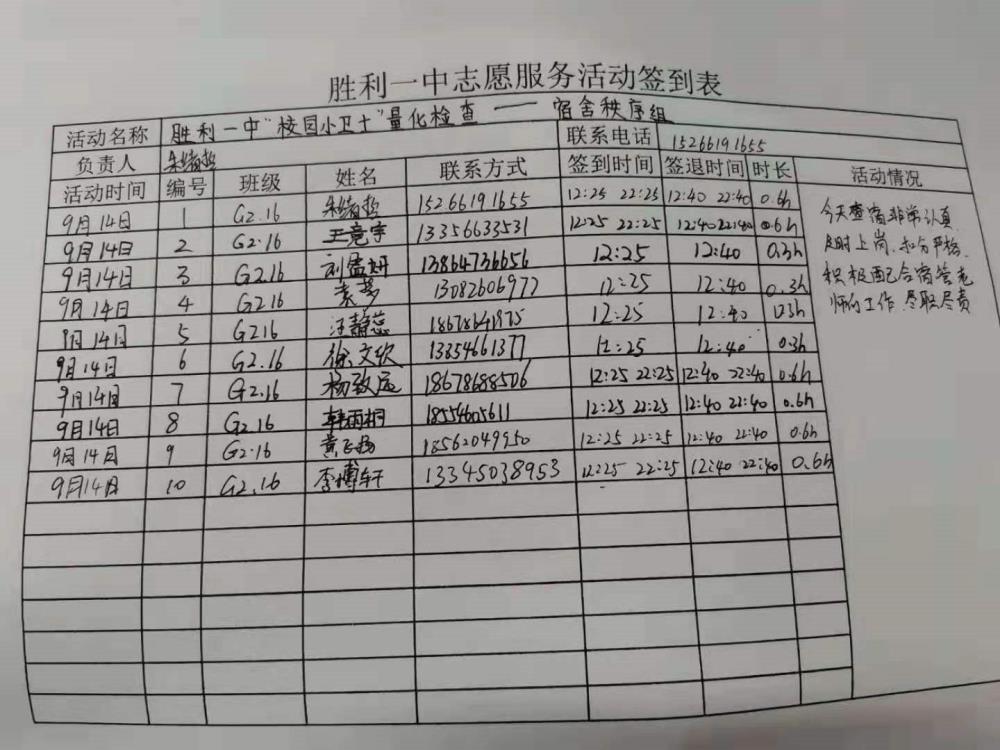 胜利一中志愿服务活动签到表
活动名称 胜利一中"校园小卫士"量化检查 —— 宿舍秩序组
负责人 朱绪哲 联系电话 15266191655
活动时间 编号 班级 姓名 联系方式 签到时间 签退时间 时长 活动情况
9月14日 1 G2.16 朱绪哲 15266191655 12:25 22:25 12:40 22:40 0.6h
9月14日 2 G2.16 王竟宇 13356633531 12:25 22:25 12:40 22:40 0.6h
9月14日 3 G2.16 刘孟妍 13864736656 12:25 12:40 0.3h
9月14日 4 G2.16 袁梦 13082606977 12:25 12:40 0.3h
9月14日 5 G2.16 汪静蕊 12:25 12:40 0.3h
9月14日 6 G2.16 徐文欣 13854661377 12:25 12:40 0.3h
9月14日 7 G2.16 杨致远 18678688506 12:25 22:25 12:40 22:40 0.6h
9月14日 8 G2.16 韩雨桐 18554605611 12:25 22:25 12:40 22:40 0.6h
9月14日 9 G2.16 黄飞扬 18562049950 12:25 22:25 12:40 22:40 0.6h
9月14日 10 G2.16 李博轩 13345038953 12:25 22:25 12:40 22:40 0.6h
今天查宿非常认真
及时上岗、扣分严格、
积极配合宿管老
师的工作、尽职尽责